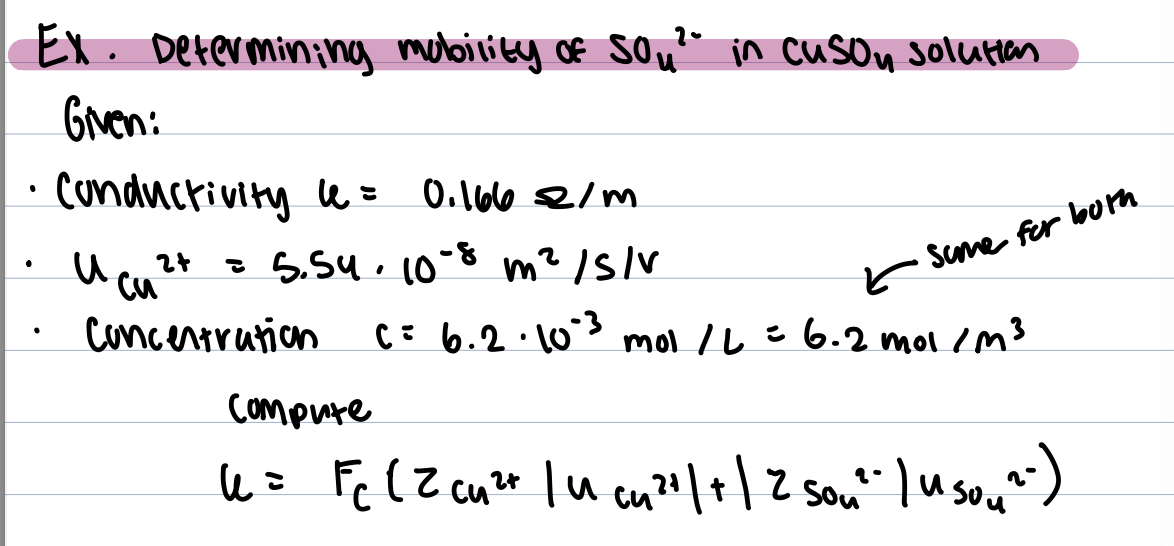 Ex. Determining mobility of SO₄²⁻ in CuSO₄ solution
Given:
· Conductivity k = 0.166 Ω/m
· u Cu²⁺ = 5.54 · 10⁻⁸ m²/s/V
same for both
· Concentration c = 6.2 · 10⁻³ mol/L = 6.2 mol/m³
compute
k = Fc (z Cu²⁺ |u Cu²⁺| + |z SO₄²⁻| u SO₄²⁻)